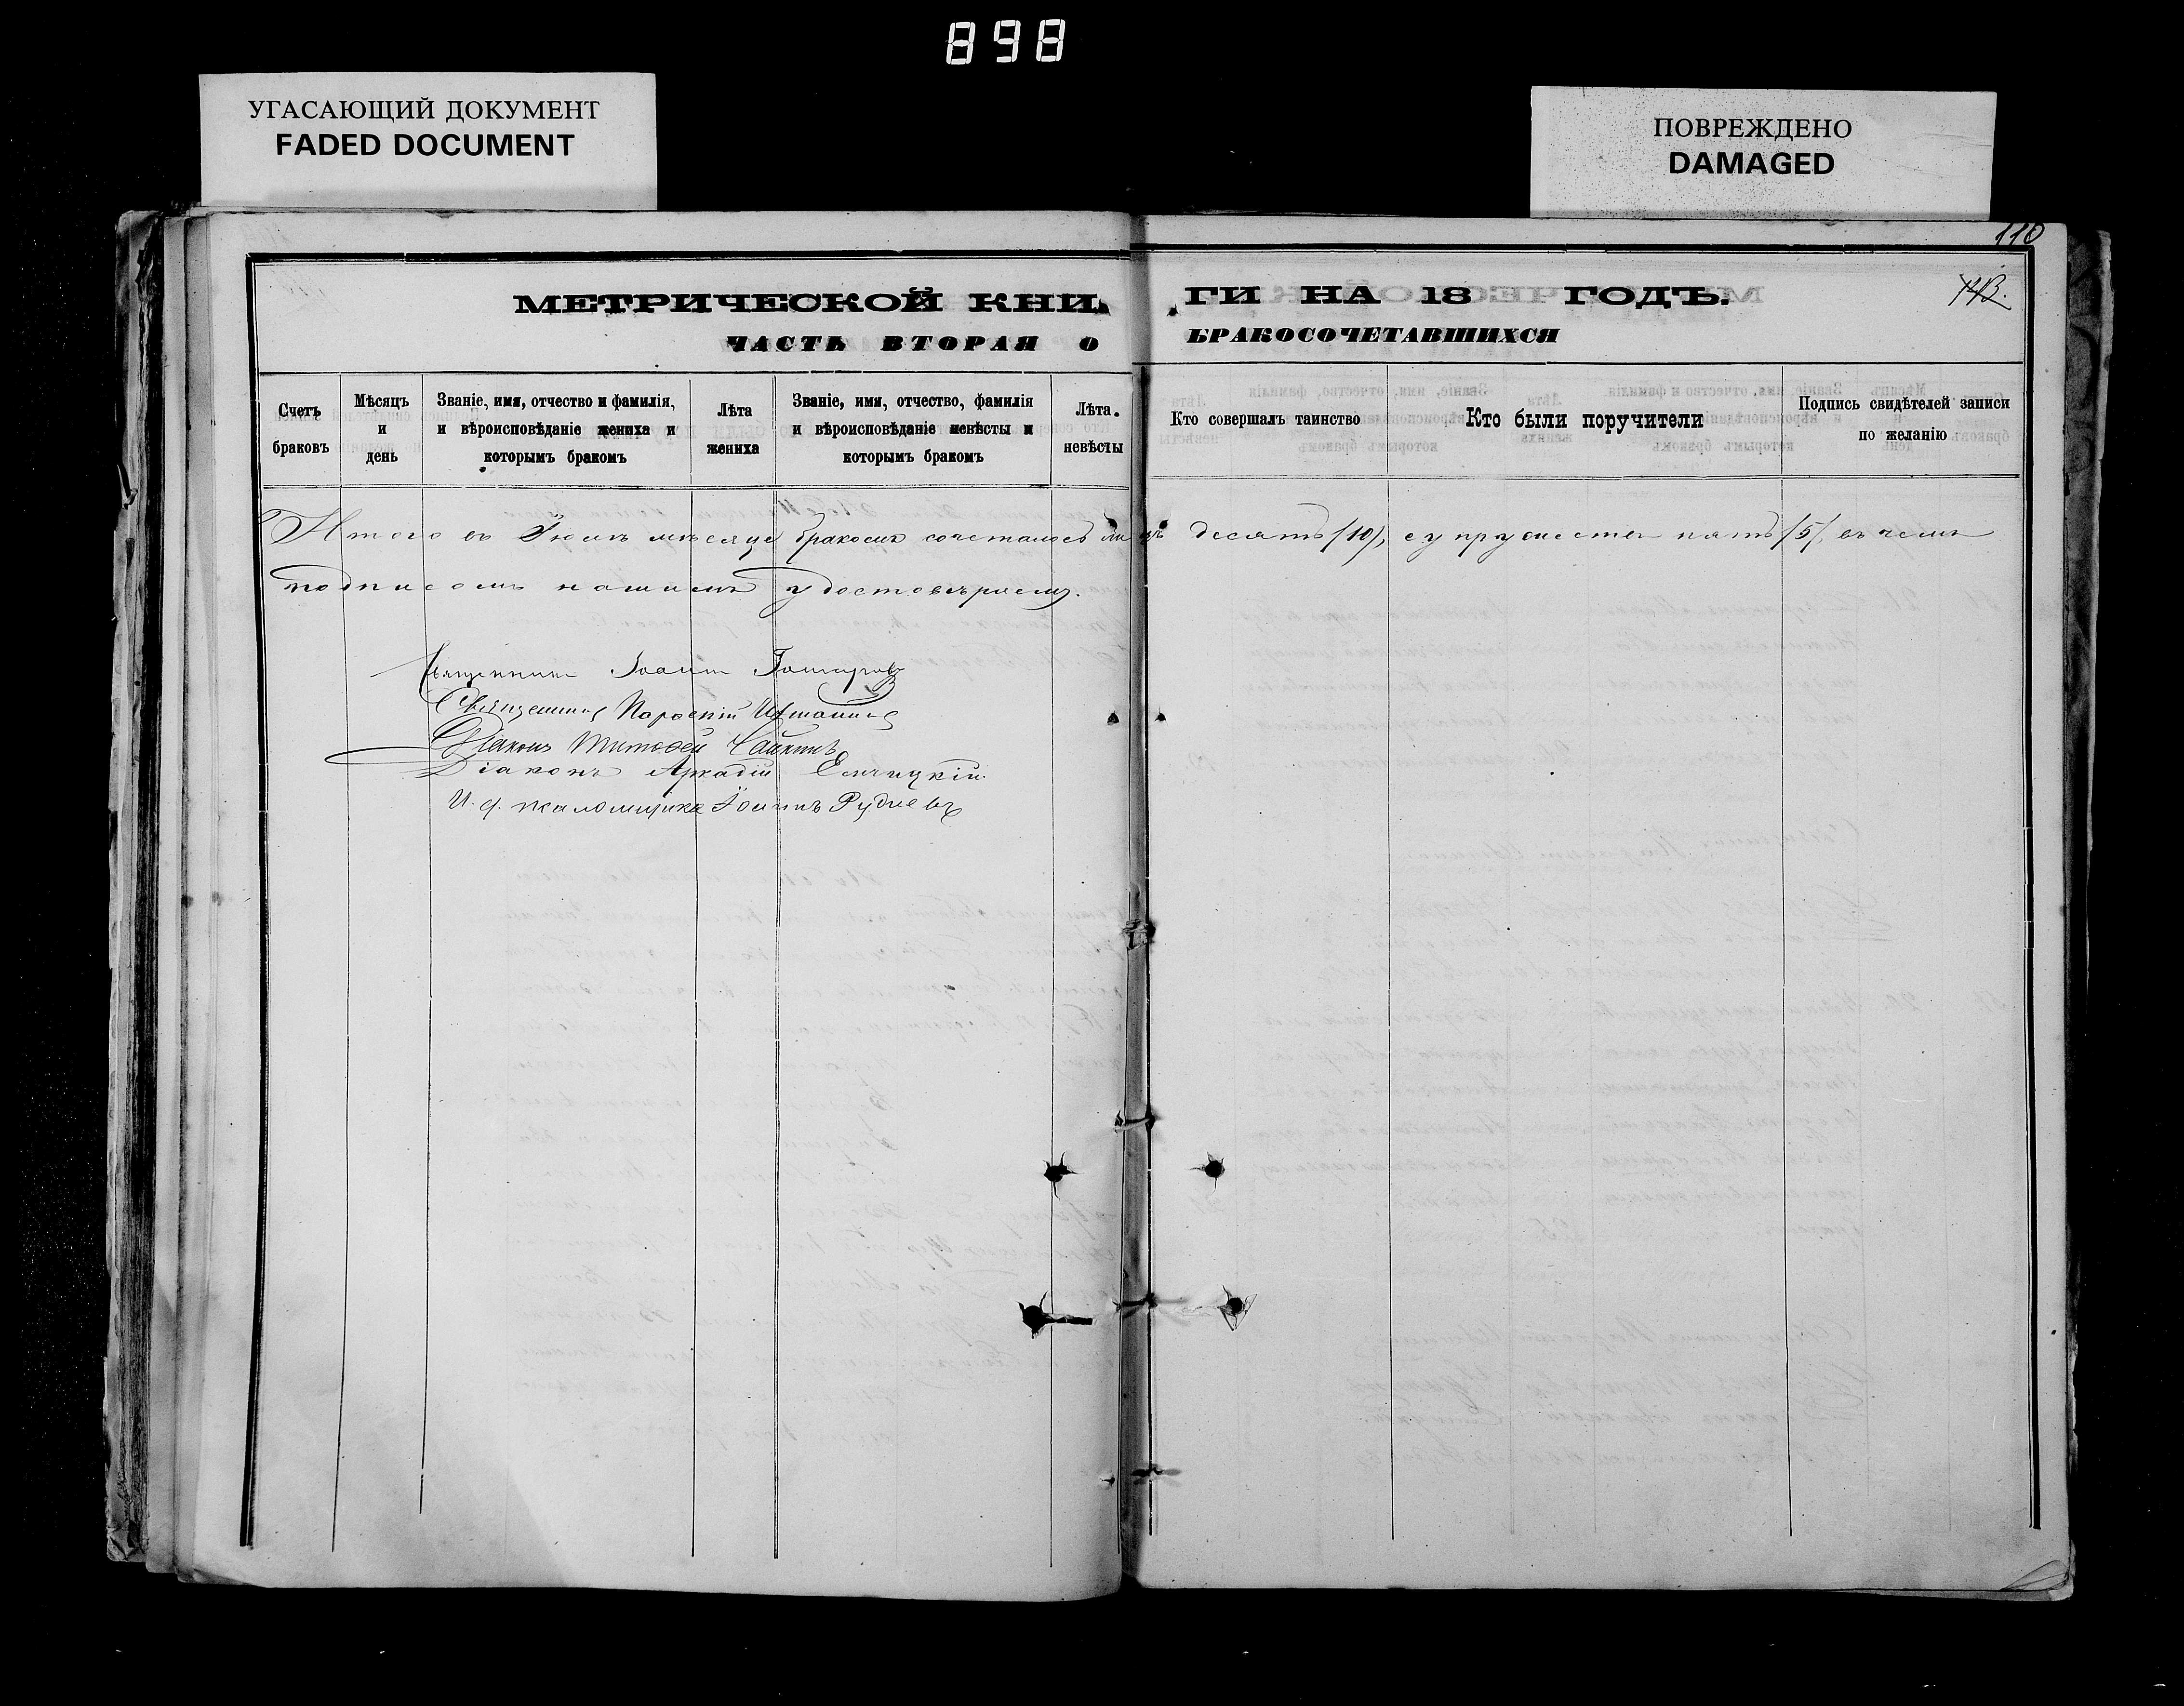 898
УГАСАЮЩИЙ ДОКУМЕНТ
FADED DOCUMENT
ПОВРЕЖДЕНО
DAMAGED
110
113.
МЕТРИЧЕСКОЙ КНИГИ НА 18 ГОДЪ.
ЧАСТЬ ВТОРАЯ О БРАКОСОЧЕТАВШИХСЯ
Счетъ браковъ
Мѣсяцъ и день
Званіе, имя, отчество и фамилія, и вѣроисповѣданіе жениха и которымъ бракомъ
Лѣта жениха
Званіе, имя, отчество, фамилія и вѣроисповѣданіе невѣсты и которымъ бракомъ
Лѣта невѣсты
Кто совершалъ таинство
Кто были поручители
Подпись свидѣтелей записи по желанію
Итого въ Іюлѣ мѣсяцѣ бракомъ сочеталось лицъ десять /10/, супружествъ пять /5/, въ чемъ
подписомъ нашимъ удостовѣряемъ.
Священникъ Іоаннъ
Священникъ
Діаконъ Тимофей Чайкинъ
Діаконъ Аркадій Елецкій.
И. д. псаломщика Іоаннъ Рудневъ